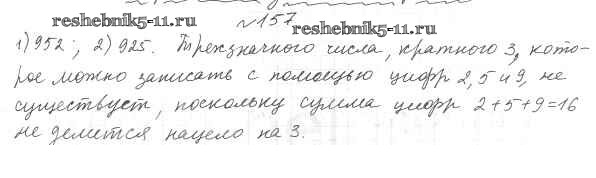 reshebnik5-11.ru
№157
reshebnik5-11.ru
1) 952; 2) 925. Трехзначного числа, кратного 3, кото-
рое можно записать с помощью цифр 2,5 и 9, не
существует, поскольку сумма цифр 2+5+9=16
не делится нацело на 3.